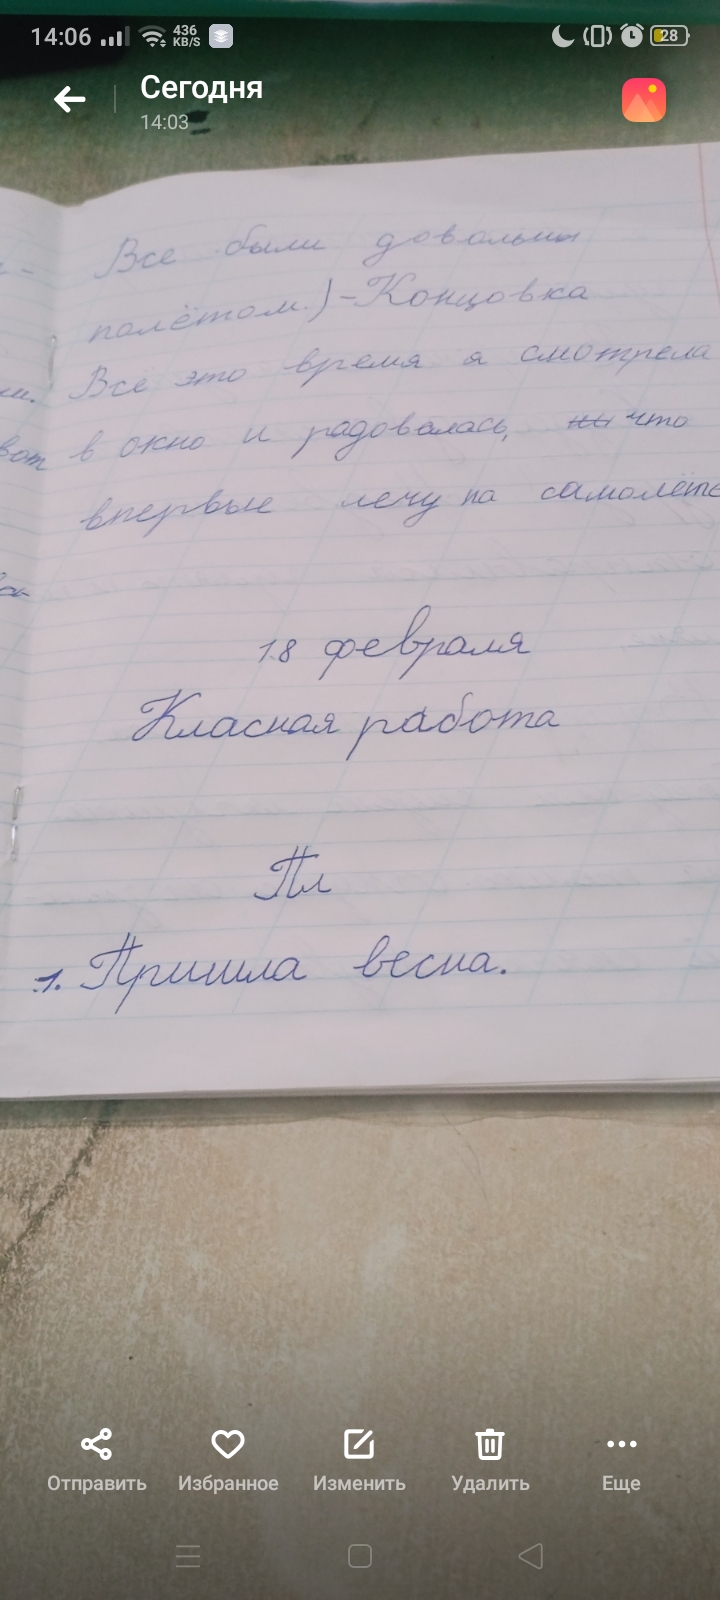 14:06 436 KB/S 28
Сегодня
14:03
Все были довольны
полётом.) - Концовка
Всё это время я смотрела
в окно и радовалась, что
впервые лечу на самолёте
18 февраля
Класная работа
Пл
1. Пришла весна.
Отправить Избранное Изменить Удалить Еще